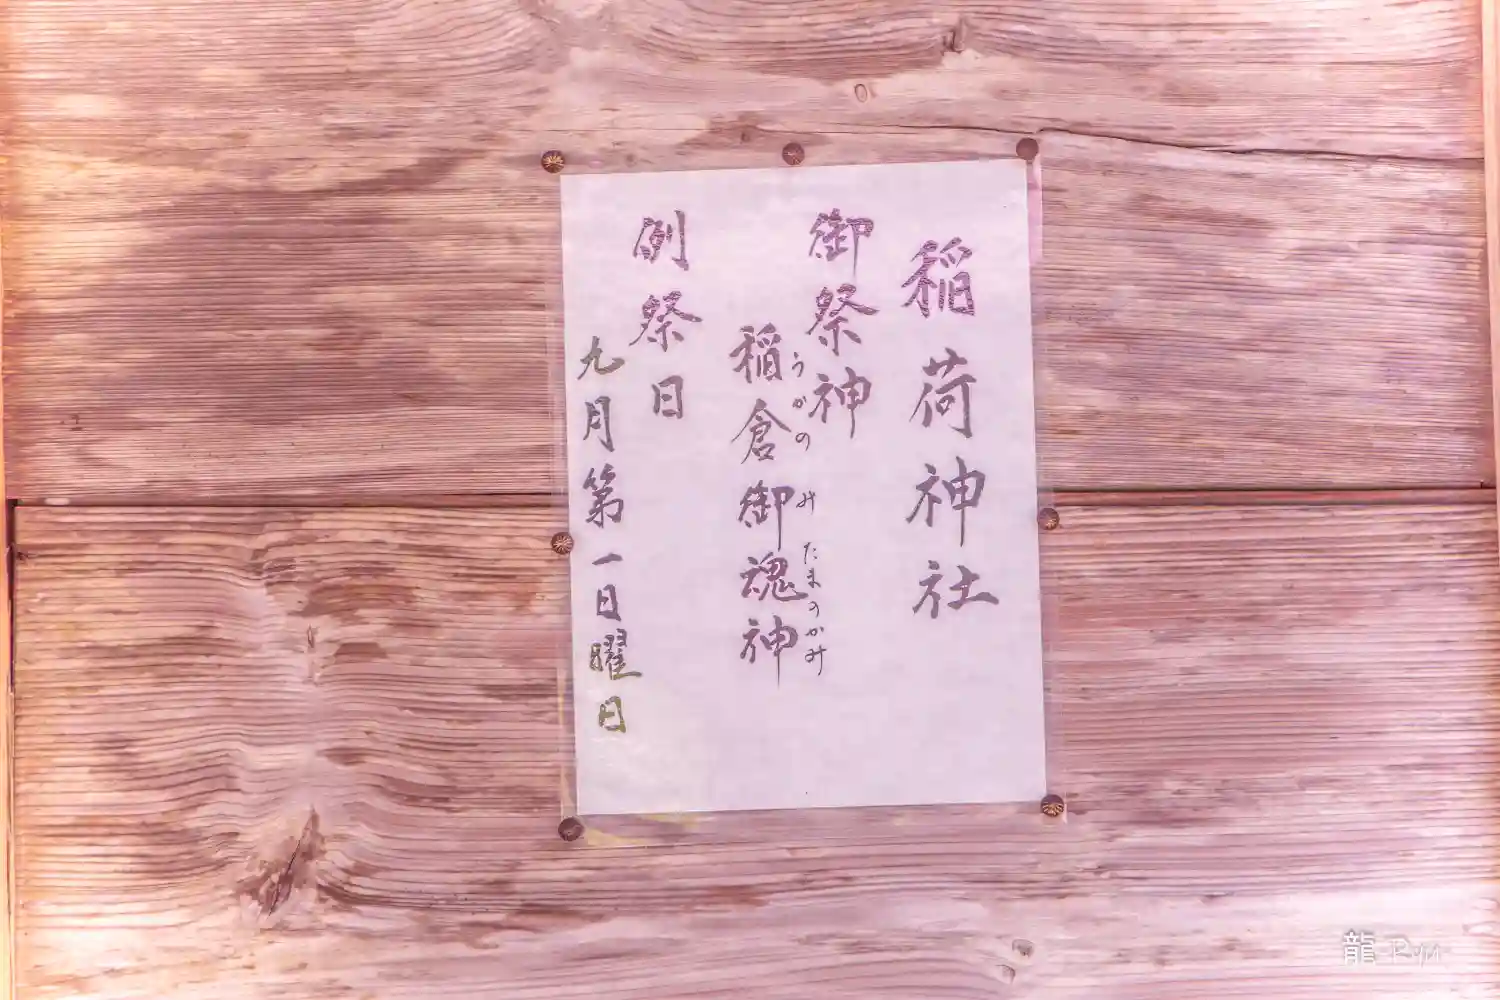 稲荷神社
御祭神
うかの みたまのかみ
稲倉御魂神
例祭日
九月第一日曜日
龍 -Ryu-